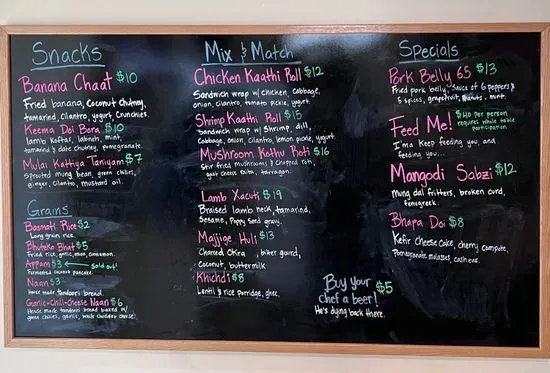 Snacks
Banana Chaat $10
Fried banana, coconut chutney,
tamarind, cilantro, yogurt, crunchies.
Keema Doi Bora $10
Lamb koftas, labneh, mint,
tamarind & date chutney, pomegranate.
Mulai Kattiya Taniyam $7
Sprouted mung bean, green chilies,
ginger, cilantro, mustard oil.
Grains
Basmati Rice $2
Long grain rice.
Bhuteko Bhat $5
Fried rice, garlic, onion, cinnamon.
Appam $3 Sold out!
Fermented coconut pancake.
Naan $3
House made tandoori bread
Garlic-Chili-Cheese Naan $6
House made tandoori bread baked w/
green chilies, garlic, white cheddar cheese.
Mix & Match
Chicken Kaathi Roll $12
Sandwich wrap w/ chicken, cabbage,
onion, cilantro, tomato pickle, yogurt.
Shrimp Kaathi Roll $15
Sandwich wrap w/ Shrimp, dill,
Cabbage, onion, cilantro, lemon pickle, yogurt.
Mushroom Kothu Roti $16
Stir fried mushrooms & chopped roti,
goat cheese raita, tarragon.
Lamb Xacuti $19
Braised lamb neck, tamarind,
Sesame, Poppy Seed gravy.
Majjige Huli $13
Charred Okra, bitter gourd,
coconut, buttermilk
Khichdi $8
Lentil & rice porridge, ghee.
Buy your $5
chef a beer!
He's dying back there.
Specials
Pork Belly 65 $13
Fried pork belly, Sauce of 6 peppers &
5 spices, grapefruit, mint.
Feed Me! $40 per person
requires whole table
participation
I'ma Keep feeding you, and
feeding you...
Mangodi Sabzi $12
Mung dal fritters, broken curd,
Fenugreek.
Bhapa Doi $8
Kefir Cheese Cake, cherry compute,
Pomegranate molasses, cashews.